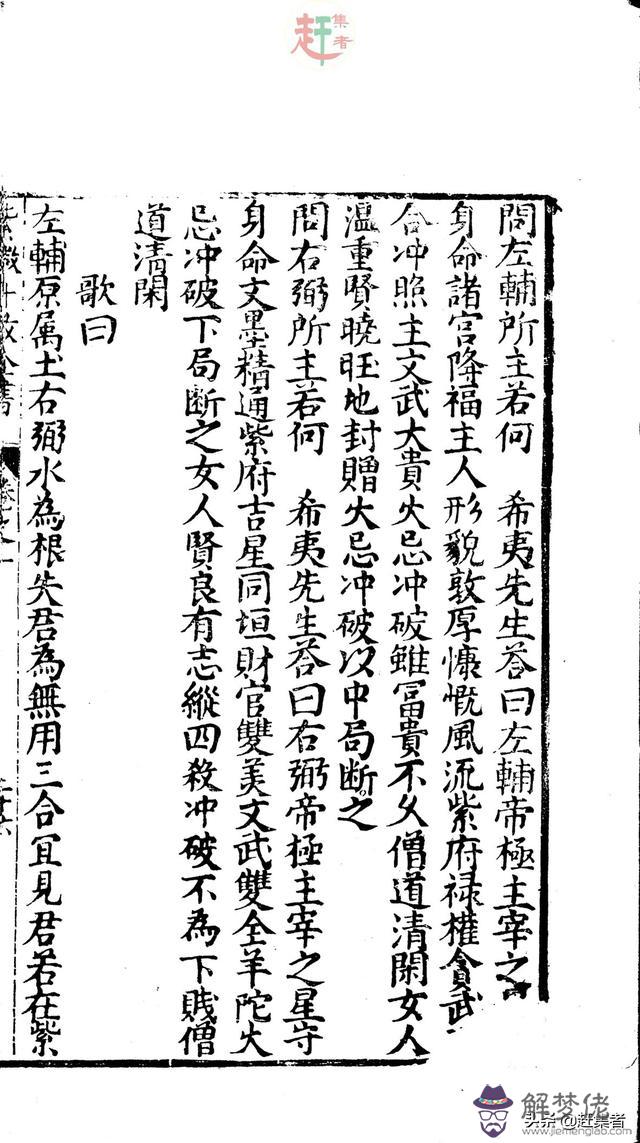 赶集者
問左輔所主若何　希夷先生荅曰左輔帝極主宰之
身命諸宮降福主人形貌敦厚慷慨風流紫府祿權貪武
合冲照主文武大貴火忌冲破雖冨貴不久僧道清閑女人
温重賢曉旺地封贈火忌冲破以中局断之
問右弼所主若何　希夷先生荅曰右弼帝極主宰之星守
身命文墨精通紫府吉星同垣財官雙美文武雙全羊陀火
忌冲破下局断之女人賢良有志縱四殺冲破不為下賎僧
道清閑
歌曰
左輔原属土右弼水為根失君為無用三合冝見君若在紫
解梦佬
www.jiemenglab.com
头条@赶集者